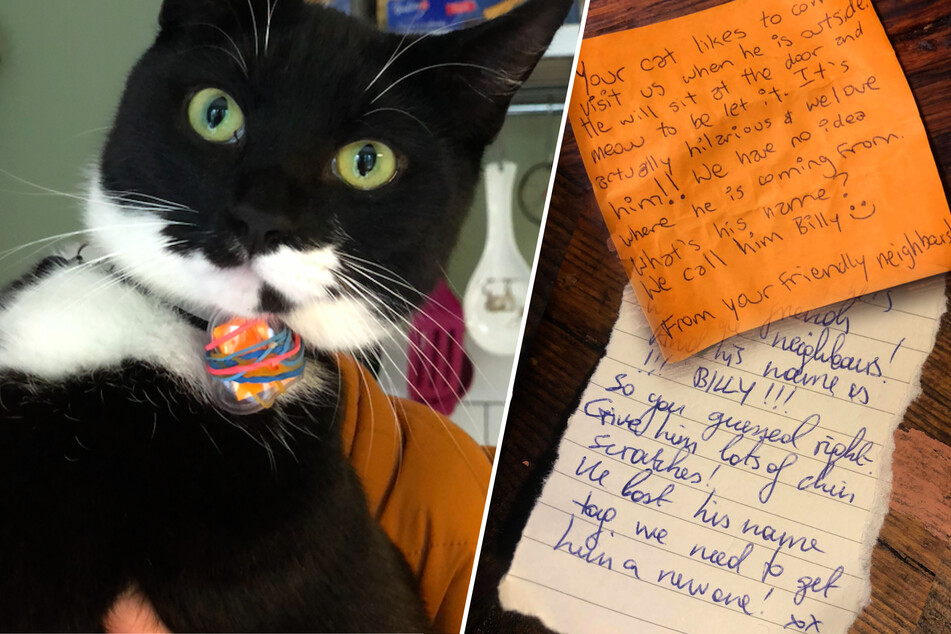 Your cat likes to
visit us when he is outside.
He will sit at the door and
meow to be let it. It's
actually hilarious & we love
him!! We have no idea
where he is coming from.
What's his name?
We call him Billy
From your friendly neighbours
friendly
neighbours!
!!! his name is
BILLY!!!
So you guessed right.
Give him lots of chin
scratches!
He lost his name
tag we need to get
him a new one! xox